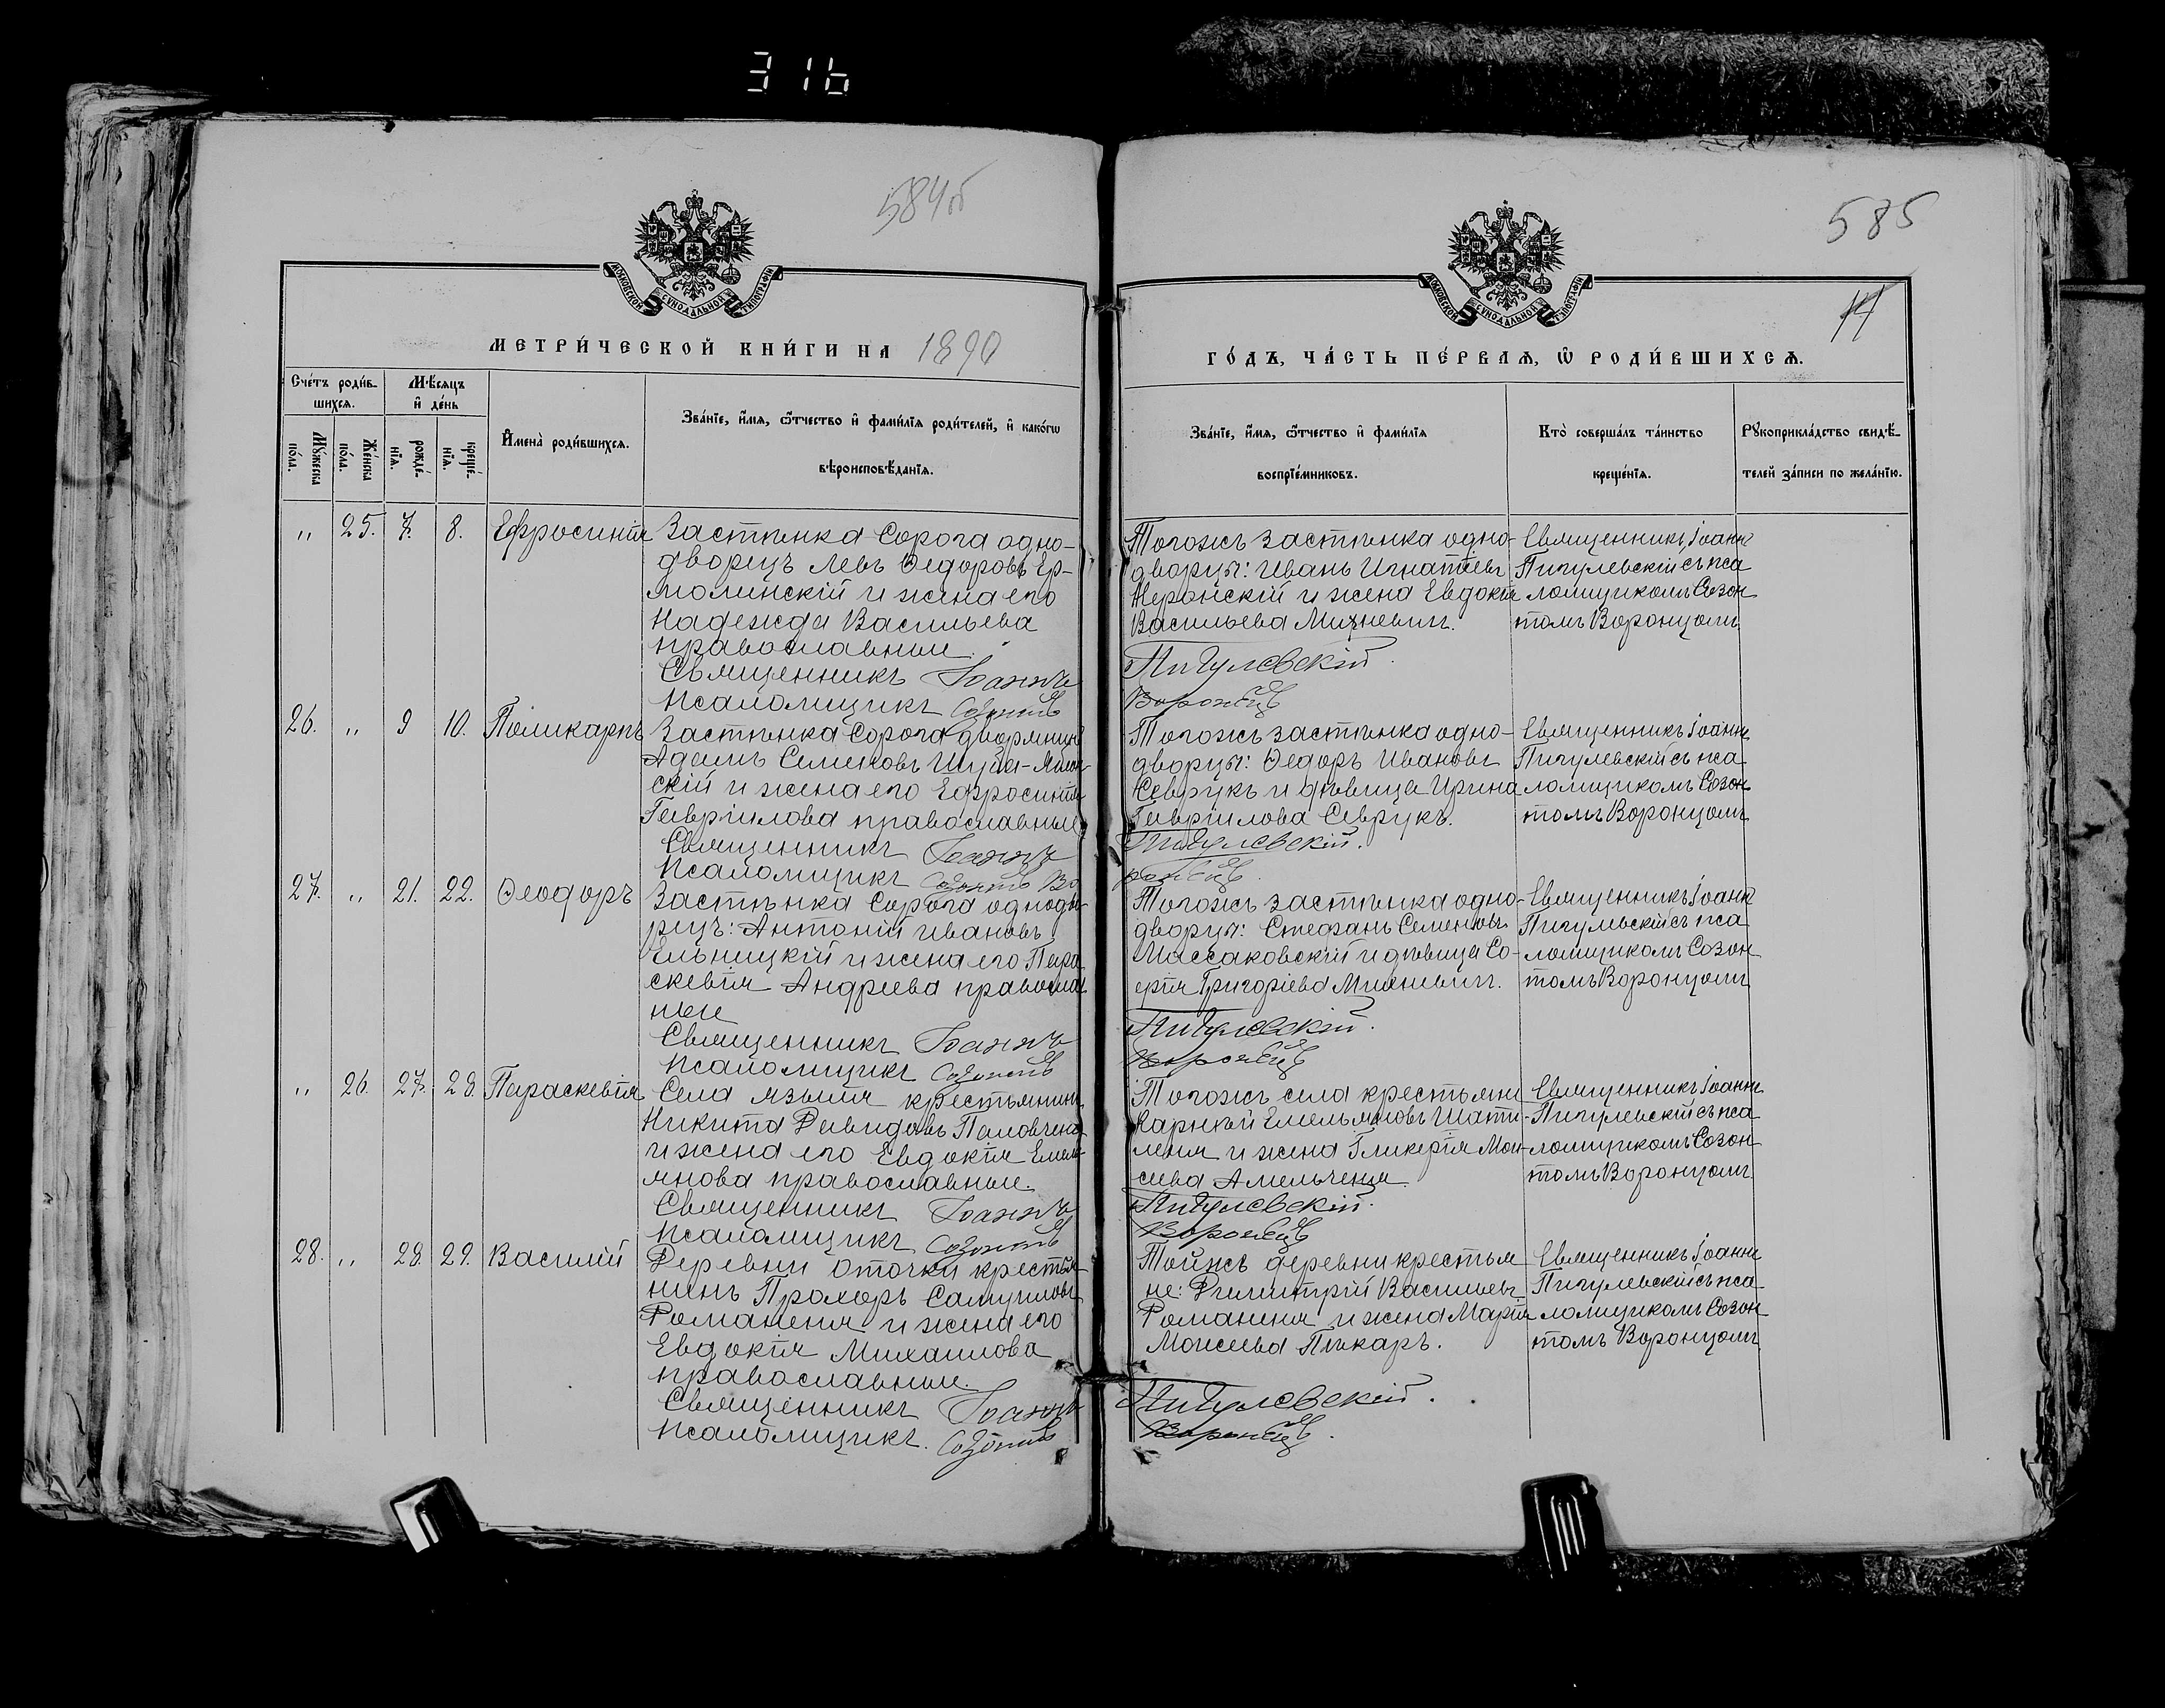 316
584об
585
МОСКОВСКОЙ СѴНОДАЛЬНОЙ ТИПОГРАФІИ
МОСКОВСКОЙ СѴНОДАЛЬНОЙ ТИПОГРАФІИ
14
МЕТРИ́ЧЕСКОЙ КНИ́ГИ НА 1890
ГО́ДЪ, ЧА́СТЬ ПЕ́РВАѦ, Ѡ҆ РОДИ́ВШИХСѦ.
Сче́тъ роди́вшихсѧ.
Мѣ́сѧцъ и҆ де́нь
Мꙋ́жеска по́ла.
Же́нска по́ла.
рожде́нїѧ.
креще́нїѧ.
И҆мена̀ роди́вшихсѧ.
Зва́нїе, и҆́мѧ, ѻ҆́тчество и҆ фами́лїѧ роди́телей, и҆ како́гѡ
вѣроисповѣ́данїѧ.
Зва́нїе, и҆́мѧ, ѻ҆́тчество и҆ фами́лїѧ
воспрїе́мниковъ.
Кто̀ соверша́лъ та́инство
креще́нїѧ.
Рꙋкоприкла́дство свидѣ́-
телей за́писи по жела́нїю.
„ 25. 7. 8. Ефросинія
Застѣнка Сорога одно-
дворецъ Левъ Ѳедоровъ Ер-
молинскій и жена его
Надежда Васильева
православные.
Священникъ Іоаннъ
Псаломщикъ Созонтъ
Тогожъ застѣнка одно-
дворцы: Иванъ Игнатіевъ
Жеронскій и жена Евдокія
Васильева Михневичъ.
Пигулевскій
Воронецъ
Священникъ Іоаннъ
Пигулевскій съ пса
ломщикомъ Созон
томъ Воронцомъ
26. „ 9 10. Поликарпъ
Застѣнка Сорога дворянинъ
Адамъ Семеновъ
скій и жена его Ефросинія
Гаврилова православные
Священникъ Іоаннъ
Псаломщикъ Созонтъ Во
Тогожъ застѣнка одно-
дворцы: Ѳедоръ Ивановъ
Севрукъ и дѣвица Ирина
Гавріилова Севрукъ.
Пигулевскій.
ронецъ.
Священникъ Іоаннъ
Пигулевскій съ пса
ломщикомъ Созон
томъ Воронцомъ
27. „ 21. 22. Ѳеодоръ
Застѣнка Сорога однодво
рецъ: Антоній Ивановъ
Ельницкій и жена его Пара
скевія Андреева православ
ные
Священникъ Іоаннъ
Псаломщикъ Созонтъ
Тогожъ застѣнка одно-
дворцы: Стефанъ Семеновъ
Массаковскій и дѣвица Со-
фія Григоріева Михневичъ.
Пигулевскій.
Воронецъ
Священникъ Іоаннъ
Пигулевскій съ пса
ломщикомъ Созон
томъ Воронцомъ
„ 26. 27. 28. Параскевія
Села Языля крестьянинъ
Никита Давидовъ Половченя
и жена его Евдокія Емель
янова православные.
Священникъ Іоаннъ
Псаломщикъ Созонтъ
Тогожъ села крестьяни
Карній Емельяновъ Шати-
леня и жена Гликерія Мои-
сеева Амельченя.
Пигулевскій.
Воронецъ
Священникъ Іоаннъ
Пигулевскій съ пса
ломщикомъ Созон
томъ Воронцомъ
28. „ 28. 29. Василій
Деревни Оточки крестья
нинъ Прохоръ Самуиловъ
Романеня и жена его
Евдокія Михаилова
православные.
Священникъ Іоаннъ
Псаломщикъ. Созонтъ
Тойжъ деревни крестья
не: Димитрій Васильевъ
Романеня и жена Марія
Моисеева Пекаръ.
Пигулевскій.
Воронецъ.
Священникъ Іоаннъ
Пигулевскій съ пса-
ломщикомъ Созон
томъ Воронцомъ